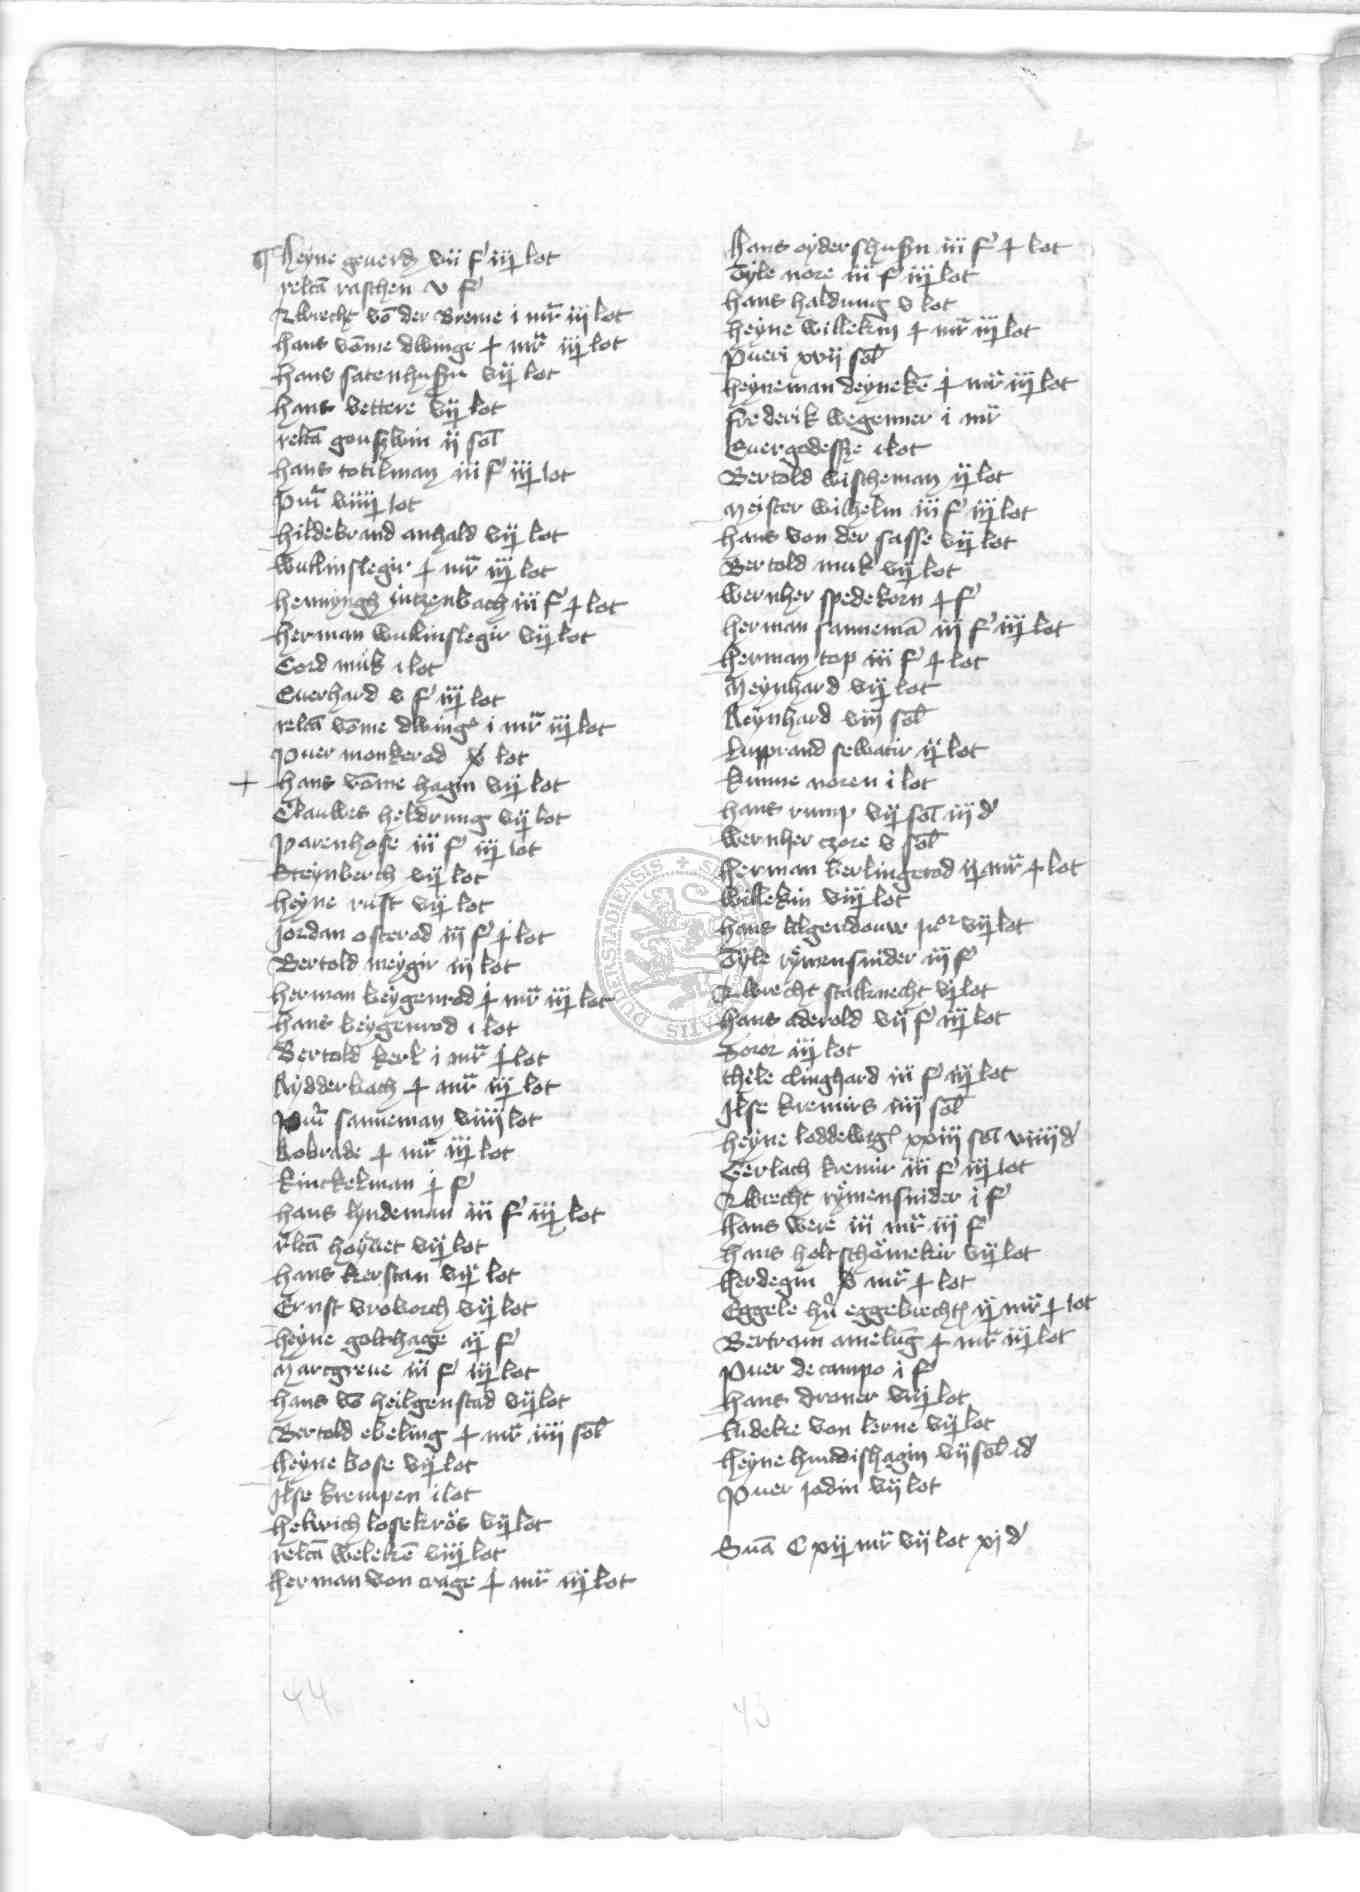 Heyne geuerd vii f iiį lot
relcā raschen v f
Albrecht vō der Breme i mr̄ iii lot
hans vōme dwinge ɟ mr̄ iiį lot
hans satenhusen vij lot
hans vettere vij lot
relcā gouslwin ij sol
hans totilman iii f iiį lot
pur̄ viiij lot
hildebrand anhald vij lot
Wulkinslegir ɟ mr̄ iiij lot
hennyngh jutzenbach iii f ɟ lot
herman wulkinslegir vij lot
Cord muk i lot
Euerhard v f iiij lot
relcā vōme dwinge i mr̄ iiij lot
puer monkerod v lot
+ hans vōme hagin vij lot
Clauwes heldrung vij lot
parenhose iii f iiij lot
Steynberch vij lot
heyne rust vij lot
jordan osterod iij f ɟ lot
Bertold meygir iij lot
herman beygenrod ɟ mr̄ iiij lot
hans beygenrod i lot
Bertold kerl i mr̄ ɟ lot
Rydderbach ɟ mr̄ iiij lot
pur̄ sanneman viiij lot
kobrade ɟ mr̄ iiij lot
kinckelman ɟ f
hans lyndeman iii f iiij lot
rlcā hoyuet vij lot
hans kerstan vij lot
Ernst vroborch vij lot
heyne golthage ij f
Marcgreue iii f iiij lot
hans vō heilgenstad vij lot
Bertold ebeling ɟ mr̄ iiij sol
heyne bose vij lot
Jlse krempen i lot
helwich losekrös vij lot
relcā welekē viij lot
herman von crage ɟ mr̄ iiij lot
hans oydershusen iii f ɟ lot
Tyle nore iii f iiij lot
hans haldung v lot
heyne willekin ɟ mr̄ iiij lot
pueri xvij sol
heyneman deynekē ɟ mr̄ iiij lot
frederik wegener i mr̄
Euergodessze i lot
Bertold wischeman ij lot
Meister wilhelm iii f iiij lot
hans von der sasse vij lot
Bertold muk vij lot
Wernher spedekorn ɟ f
herman sannemā iij f iiij lot
herman top iii f ɟ lot
Meynhard vij lot
Reynhard viij sol
Lupprand selwatir ij lot
kunne noren i lot
hans rump vij sol iij d
Wernher czore v sol
herman berlingerod ij mr̄ ɟ lot
Willekin viij lot
hans Algendouw juor vij lot
Tyle rymensnider iij f
Albrecht stalknecht vj lot
hans aderold vij f iiij lot
Soror iiij lot
thyle clinghard iii f iiij lot
Jlse kremirs iiij sol
heyne loddewig xxiii sol viiij d
Gerlach kremir iii f iiij lot
Albrecht rymensnider i f
hans were iii mr̄ iii f
hans holtschomekir vij lot
herdegin v mr̄ ɟ lot
Eggele hn̄ eggebrecht ij mr̄ ɟ lot
Bertram amelūg ɟ mr̄ iiij lot
puer de campo i f
hans droner viij lot
Ludeke von lerne vij lot
heyne hundishagin vij sol i d
puer jodin vij lot
Sūa C xvij mr̄ vij lot xj d
44
43